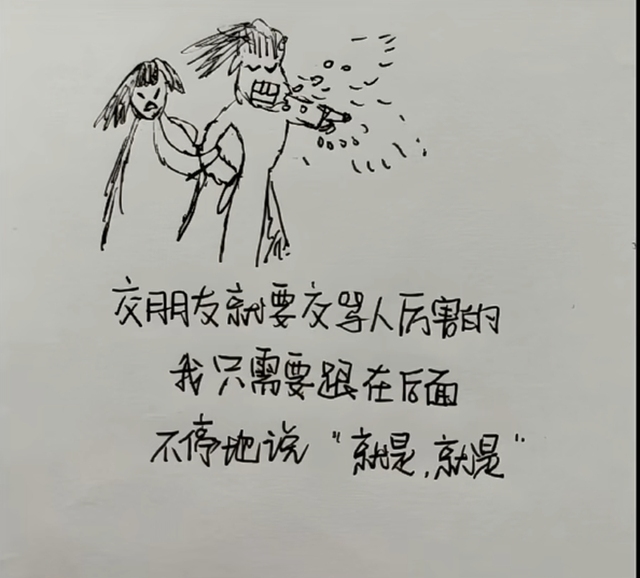 交朋友就要交骂人厉害的
我只需要跟在后面
不停地说“就是,就是”